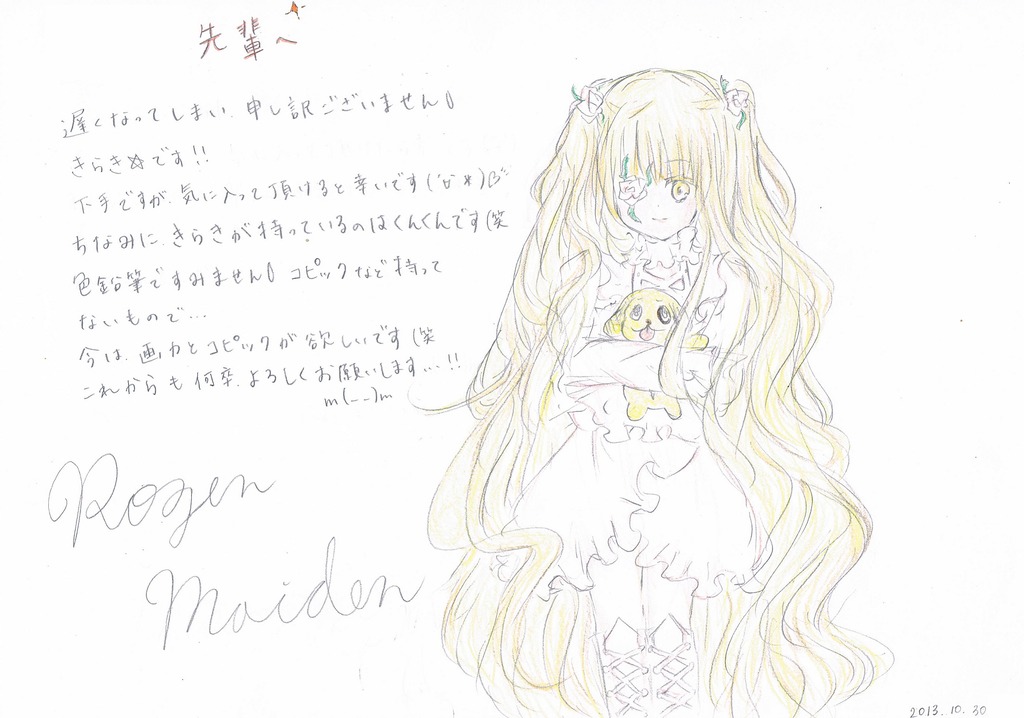 先輩へ
遅くなってしまい、申し訳ございません
きらきです!!
下手ですが、気に入って頂けると幸いです
ちなみに、きらきが持っているのはくんくんです(笑
色鉛筆ですみません コピックなど持って
ないもので…
今は、画力とコピックが欲しいです(笑
これからも何卒、よろしくお願いします…!!
m(--)m
Rozen
Maiden
2013.10.30